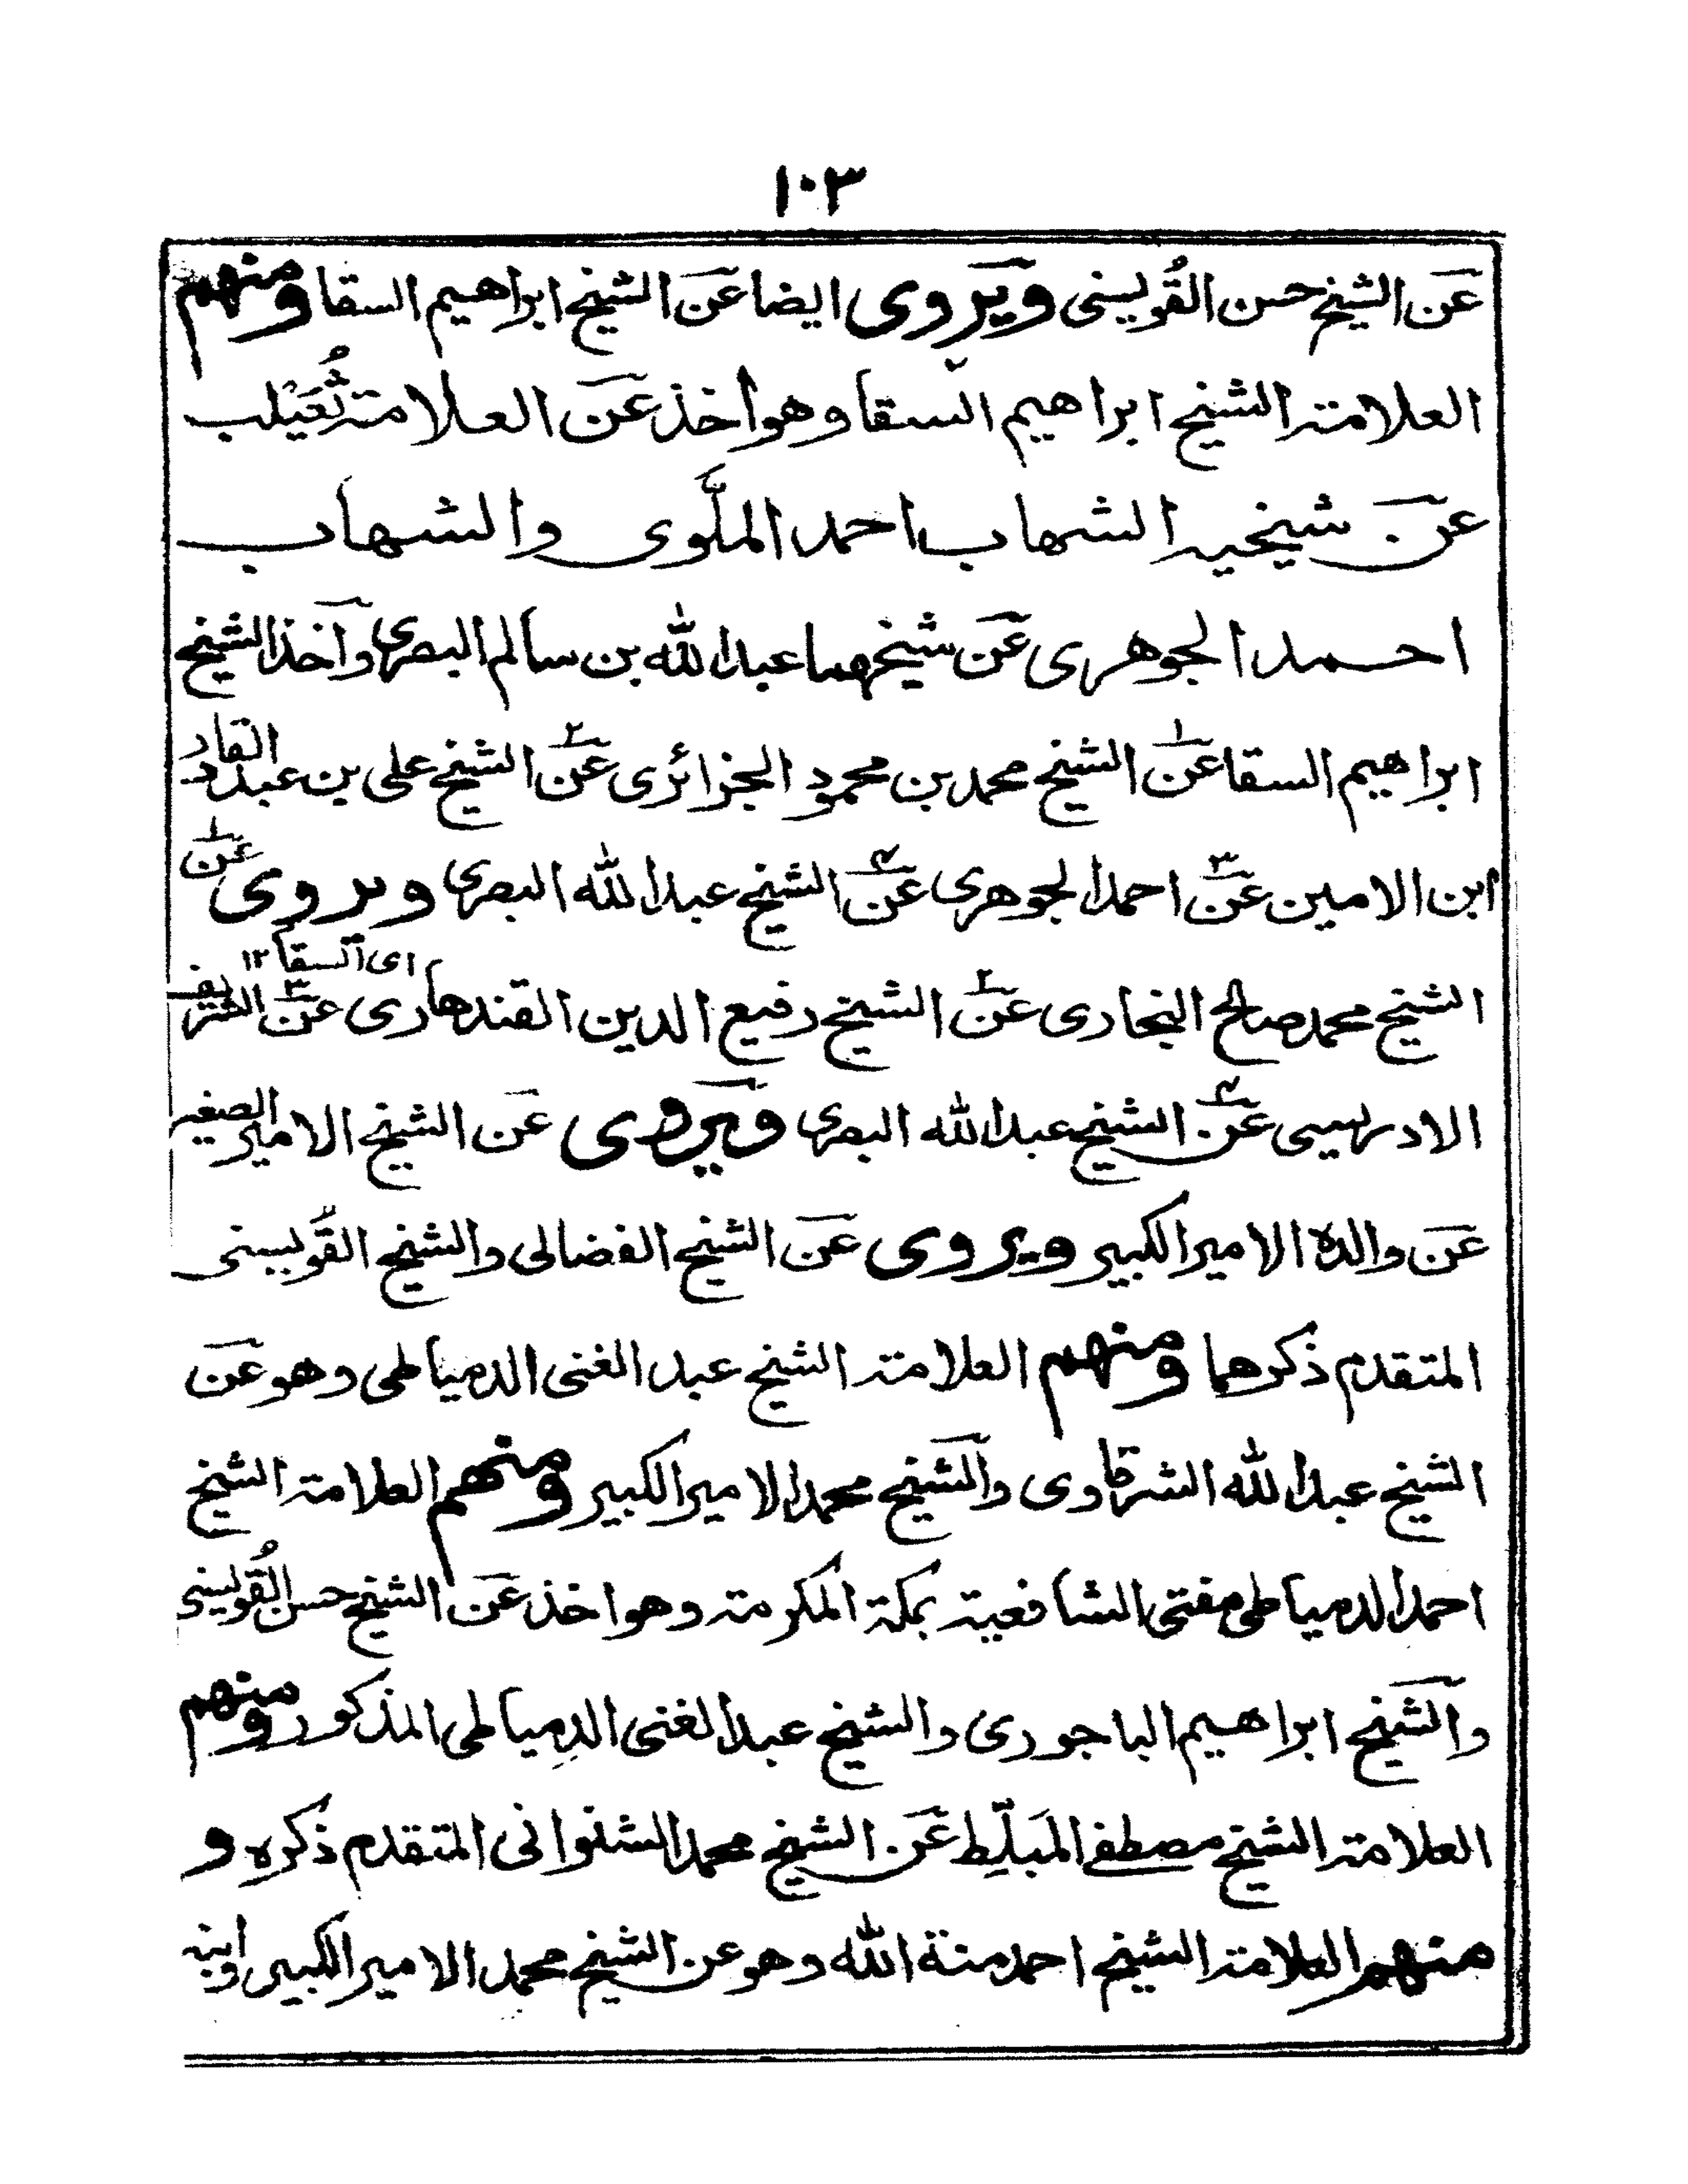 ١٠٣
عن الشيخ حسن القُويسنى ويروى ايضا عن الشيخ ابراهيم السقا ومنهم
العلامة الشيخ ابراهيم السقا وهو اخذ عن العلامة ثُعَيْلب
عن شيخيه الشهاب احمد الملّوى والشهاب
احمد الجوهرى عن شيخهما عبد الله بن سالم البصرى واخذ الشيخ
ابراهيم السقا عن١ الشيخ محمد بن محمود الجزائرى عن٢ الشيخ على بن عبد القادر
ابن الامين عن٣ احمد الجوهرى عن۴ الشيخ عبد الله البصرى ويروى عن١
اى السقا ١٢
الشيخ محمد صالح البخارى عن٢ الشيخ رفيع الدين القندهارى عن٣ الشريف
الادريسى عن۴ الشيخ عبد الله البصرى ويروى عن الشيخ الامير الصغير
عن والده الامير الكبير ويروى عن الشيخ الفضالى والشيخ القُويسنى
المتقدم ذكرهما ومنهم العلامة الشيخ عبد الغنى الدمياطى وهو عن
الشيخ عبد الله الشرقاوى والشيخ محمد الامير الكبير ومنهم العلامة الشيخ
احمد الدمياطى مفتى الشافعية بمكة المكرمة وهو اخذ عن الشيخ حسن القُويسنى
والشيخ ابراهيم الباجورى والشيخ عبد الغنى الدمياطى المذكور ومنهم
العلامة الشيخ مصطفے المَبلّط عن الشيخ محمد الشنوانى المتقدم ذكره و
منهم العلامة الشيخ احمد منة الله وهو عن الشيخ محمد الامير الكبير وابنه